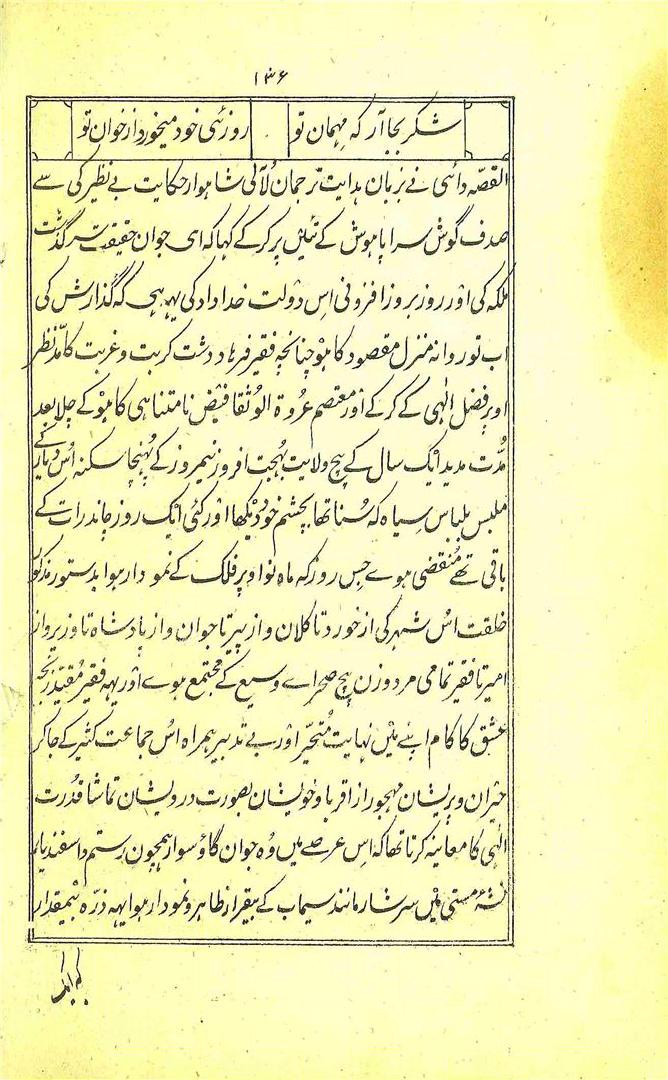 ۱۳۶
شکر بجا آر که مهمان تو روزئی خود میخورد از خوان تو
القصّه دائی نے زبان ہدایت ترجمان لآلی شاہوار حکایت بے نظیر کی سے
صدف گوش سراپا ہوش کے تئیں پر کرکے کہا کہ ای جوان حقیقت سرگذشت
ملکہ کی اور روز بروز افزونی اس دولت خداداد کی یہہ ہی کہ گذارش کی
اب تو روانہ منزل مقصود کا ہو چنانچہ فقیر فرہاد دشت کربت و غربت کا مدّ نظر
اوپر فضل الٰہی کے کرکے اور معتصم عروۃ الوثقا فیض نامتناہی کا ہو کے چلا بعد
مُدّت مدید ایک سال کے بیچ ولایت بہجت افروز نیمروز کے پُہنچا سکنہ اُس دیار کے
ملبس بلباس سیاہ کہ سُنا تھا بچشم خود دیکھا اور کئی ایک روز چاندرات کے
باقی تھے مُنقضی ہوے جس روز کہ ماہ نو اوپر فلک کے نمودار ہوا بدستور مذکور
خلقت اُس شہر کی از خورد تا کلان و از پیر تا جوان و از پادشاہ تا وزیر و از
امیر تا فقیر تمامی مرد و زن بیچ صحراے وسیع کے مجتمع ہوے اور یہہ فقیر مُقیّد زنجیر
عشق کا کام اپنے میں نہایت مُتحیّر اور بے تدبیر ہمراہ اُس جماعت کثیر کے جاکر
حیران و پریشان مہجور از اقربا و خویشان بصورت درویشان تماشا قُدرت
الٰہی کا معاینہ کرتا تھا کہ اس عرصے میں وُہ جوان گاؤ سوار ہمچون رستم و اسفندیار
نشۂ مستی میں سرشار مانند سیماب کے بیقرار ظاہر و نمودار ہوا یہہ ذرّہ بیمقدار
کہ ایک